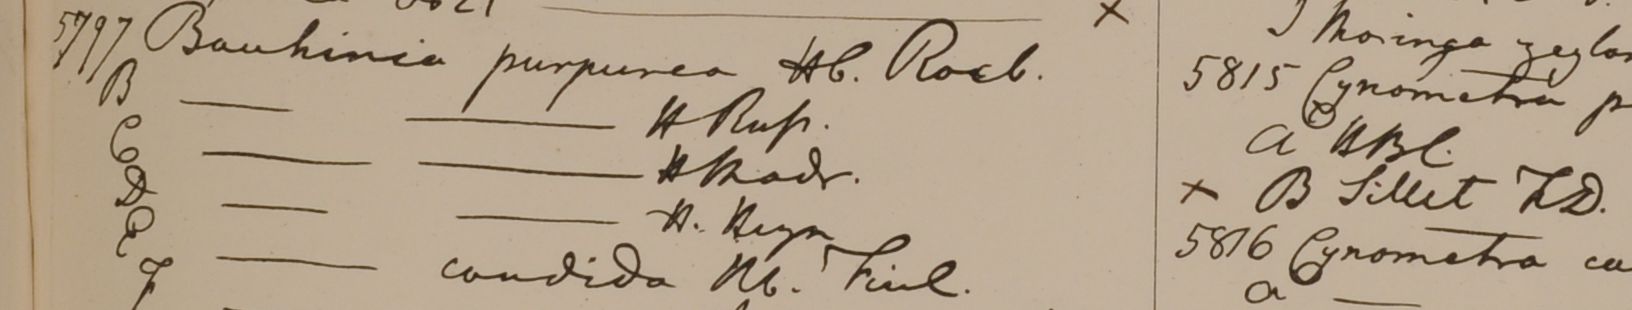 5797 Bauhinia purpurea Hb. Roxb.
B — — H Russ.
C — — H Madr.
D — — H. Heyn
E — candida Hb. Finl.
F
× 
Moringa zeylan
5815 Cynometra
a HBC.
× B Sillet F.D.
5816 Cynometra ca
a —